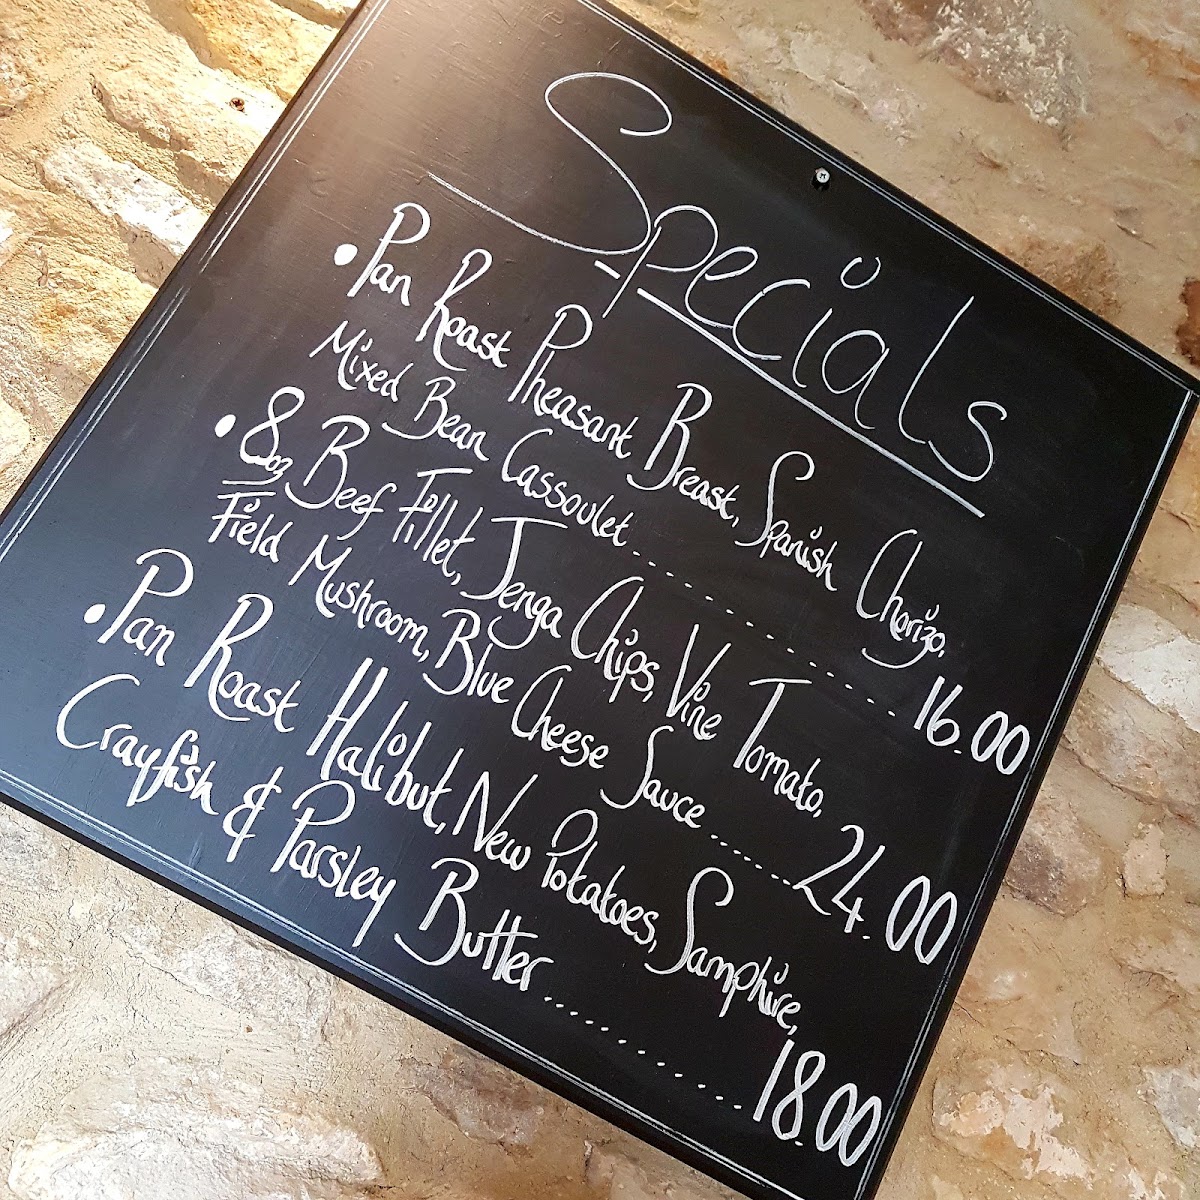 Specials
• Pan Roast Pheasant Breast, Spanish Chorizo,
Mixed Bean Cassoulet.................. 16.00
• 8oz Beef Fillet, Jenga Chips, Vine Tomato,
Field Mushroom, Blue Cheese Sauce........ 24.00
• Pan Roast Halibut, New Potatoes, Samphire,
Crayfish & Parsley Butter............... 18.00